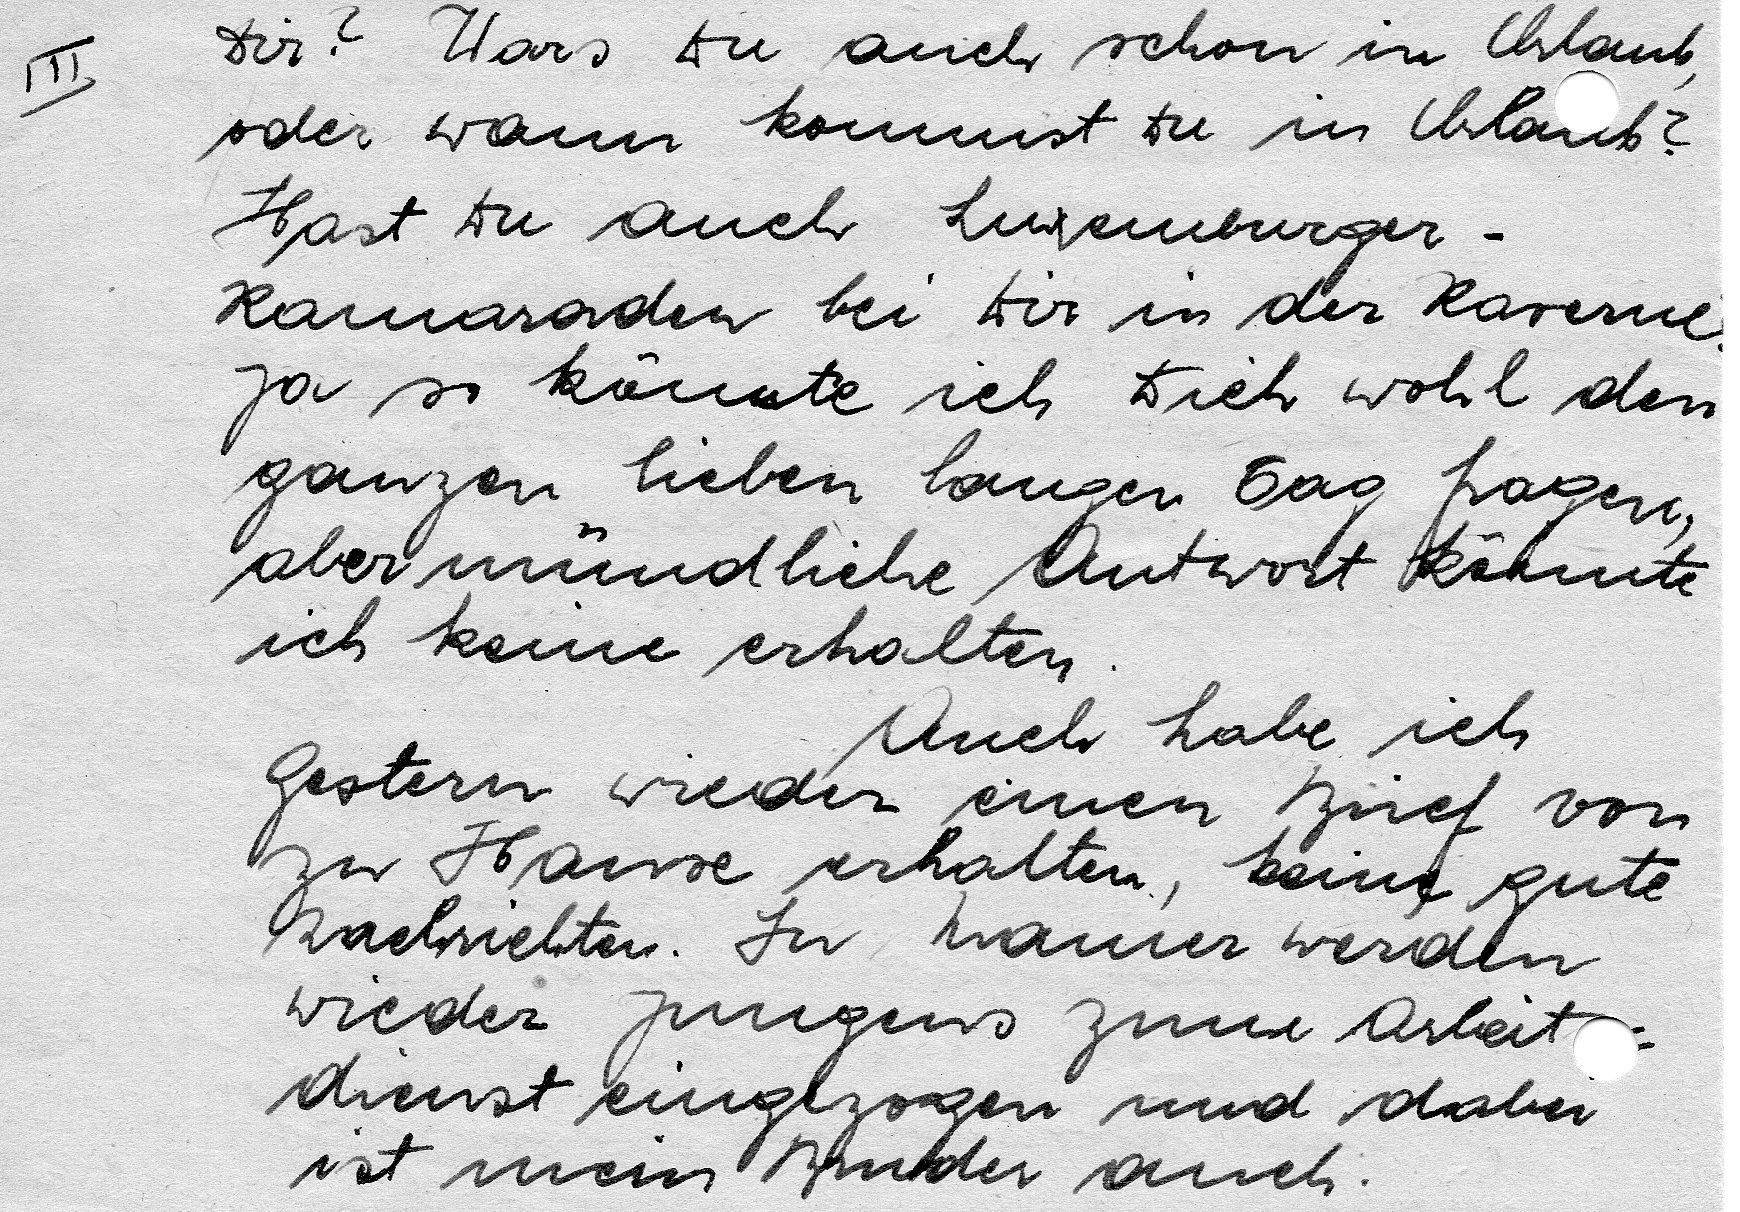 III
Dir? Wars Du auch schon in Urlaub,
oder wann kommst Du in Urlaub?
Hast Du auch Luxemburger-
Kamaraden bei Dir in der Kaserne?
Ja so könnte ich Dich wohl den
ganzen lieben langen Tag fragen,
aber mündliche Antwort könnte
ich keine erhalten.
Auch habe ich
Gestern wieder einen Brief von
zu Hause erhalten, keine gute
Nachrichten. In Mamer werden
wieder Jungens zum Arbeits=
dienst eingezogen und dabei
ist mein Bruder auch.